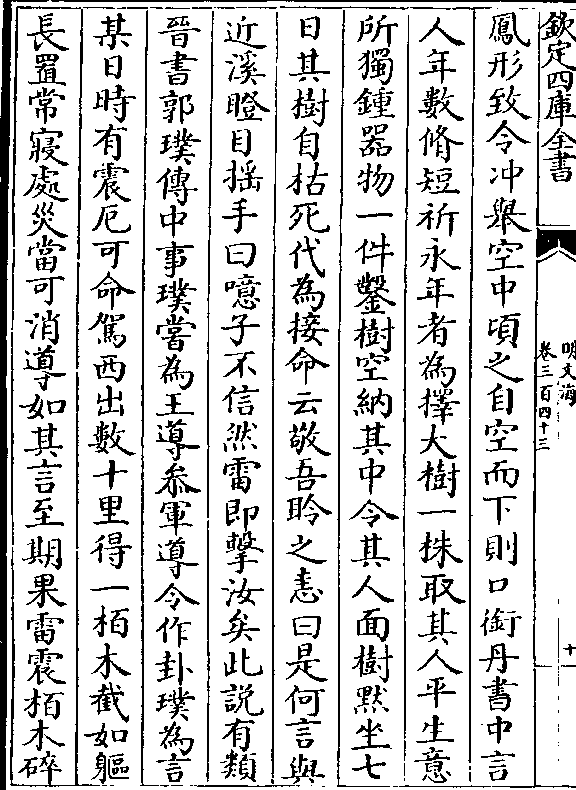 欽定四庫全書
明文海
卷三百四十三
十一
鳳形致令冲舉空中頃之自空而下則口銜丹書中言
人年數脩短祈永年者為擇大樹一株取其人平生意
所獨鍾器物一件鑿樹空納其中令其人面樹黙坐七
日其樹自枯死代為接命云敬吾聆之恚曰是何言與
近溪瞪目揺手曰噫子不信然雷即擊汝矣此説有類
晉書郭璞傳中事璞嘗為王導叅軍導令作卦璞為言
某日時有震厄可命駕西出數十里得一栢木截如軀
長置常寢處災當可消導如其言至期果雷震栢木碎